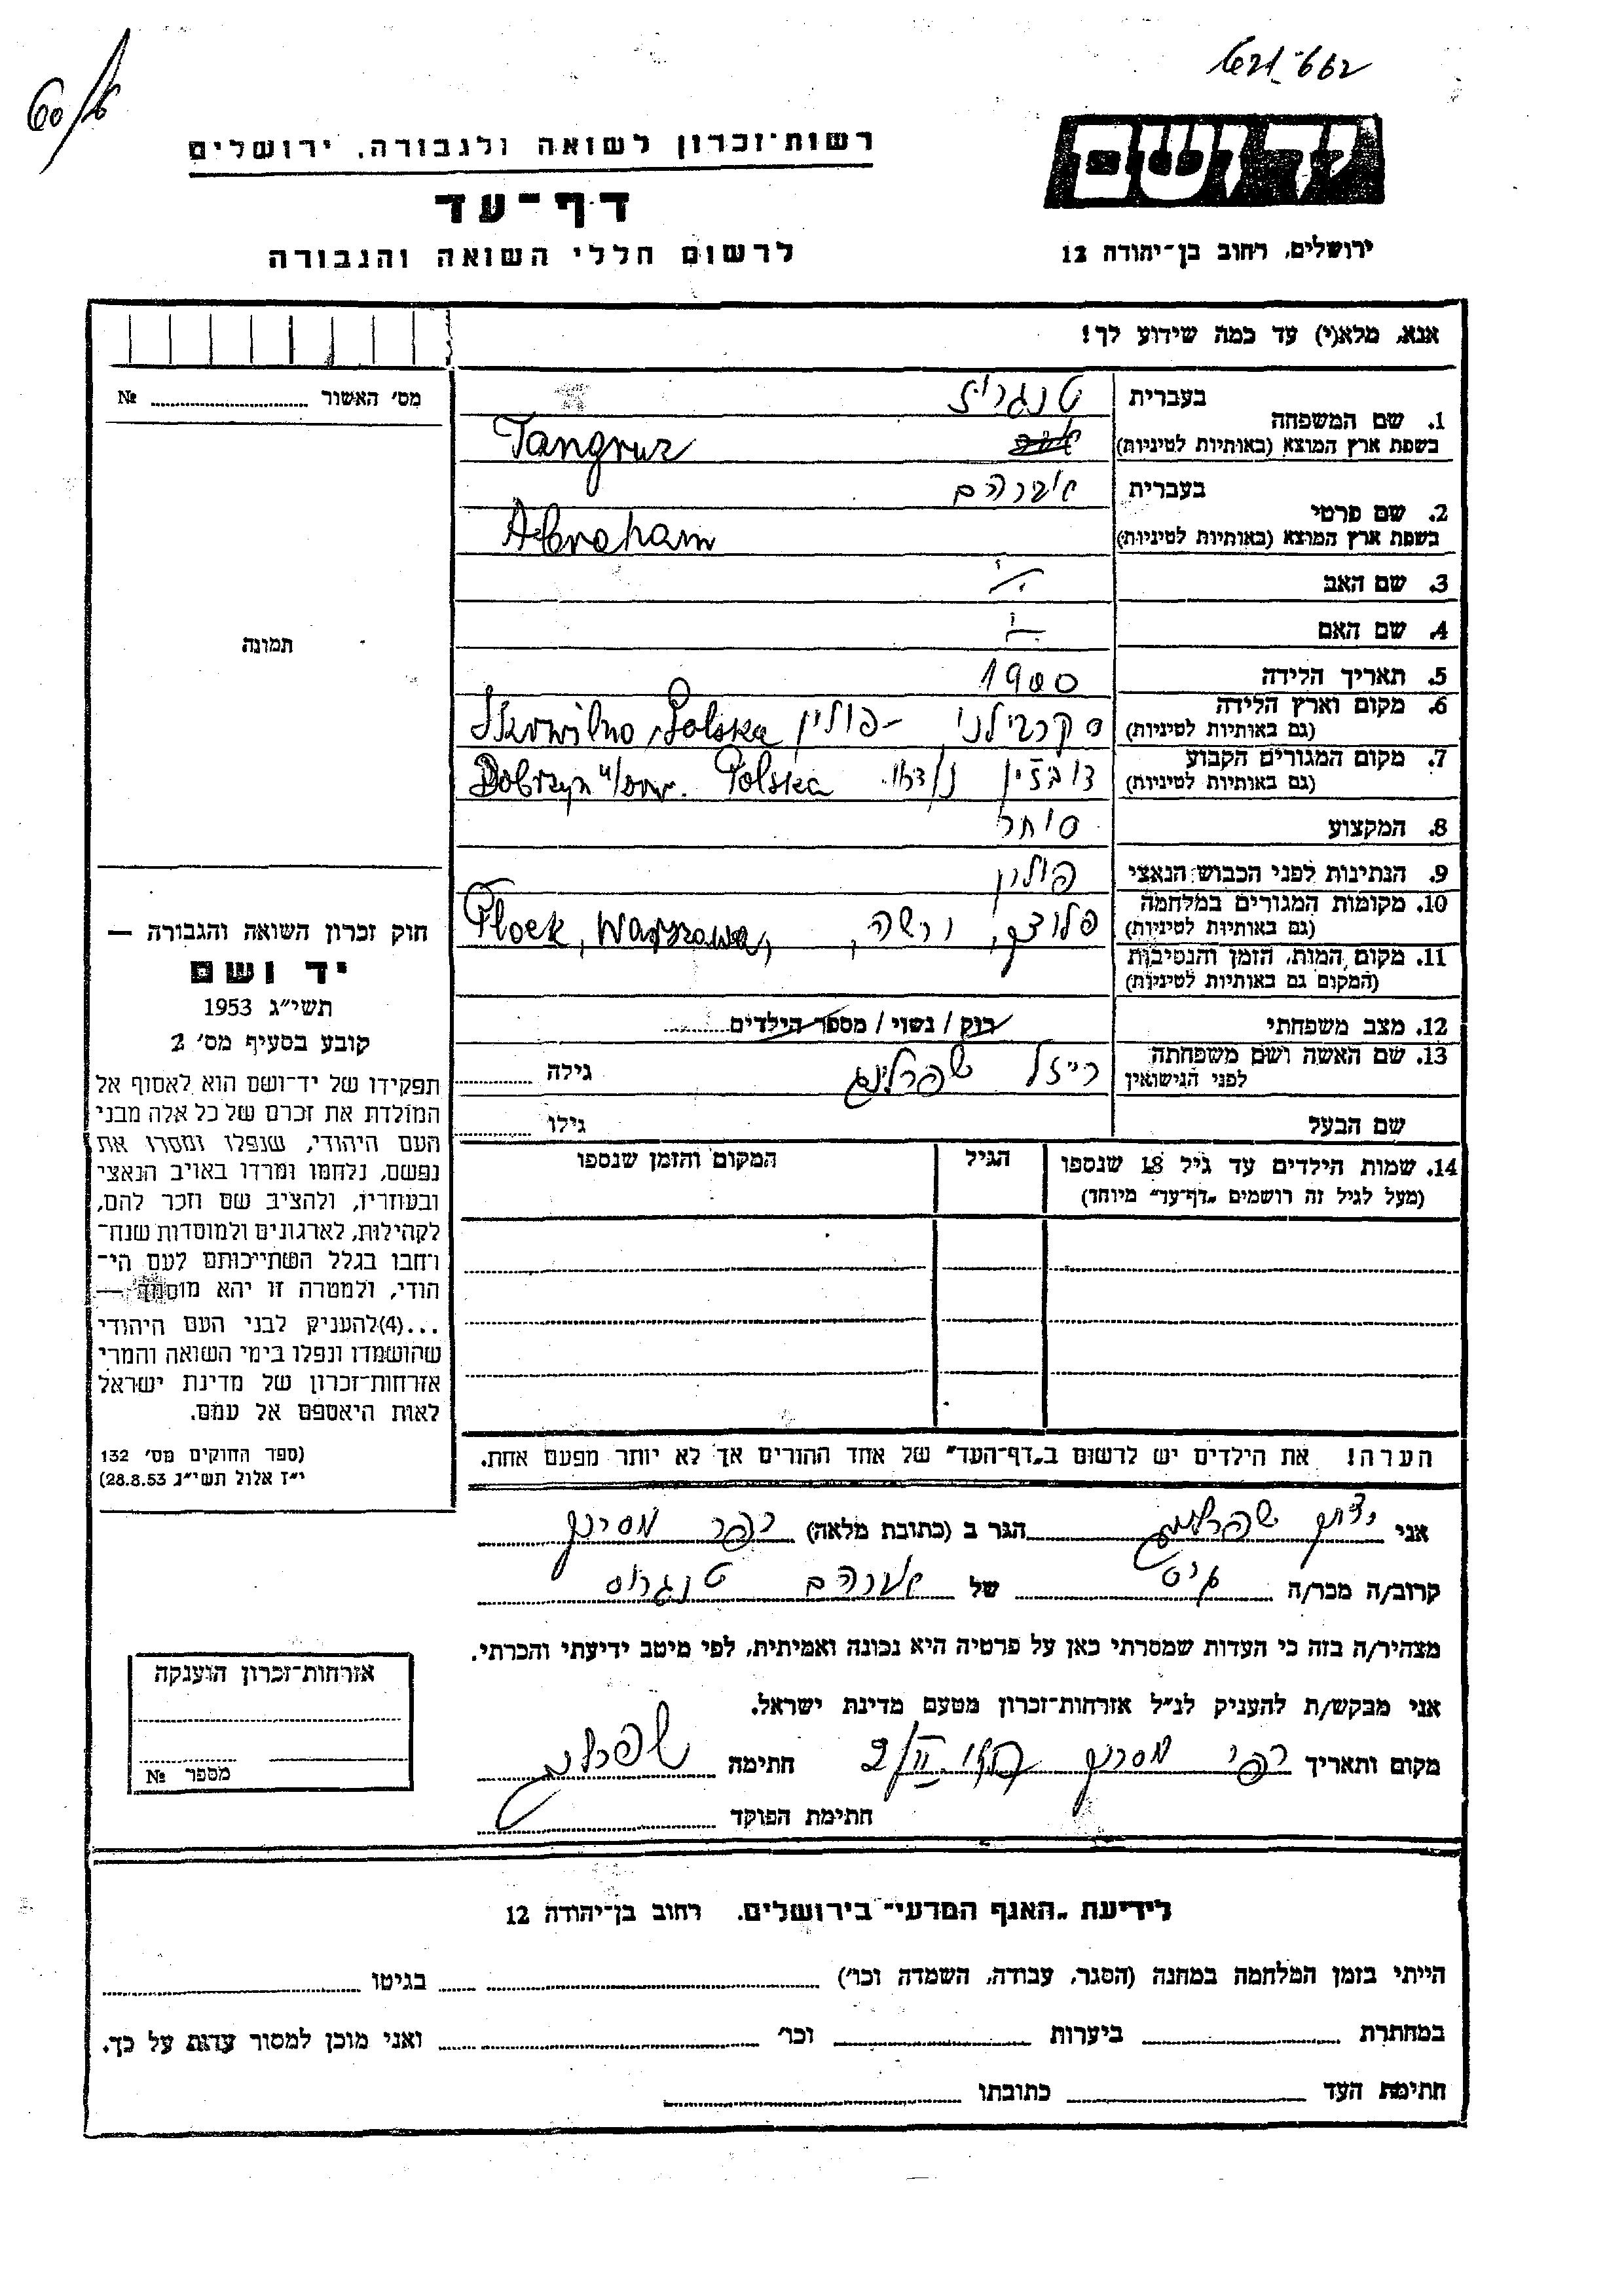 60/
יד ושם
רשות־זכרון לשואה ולגבורה, ירושלים
דף־עד
לרשום חללי השואה והגבורה
ירושלים, רחוב בן־יהודה 12
אנא, מלא(י) עד כמה שידוע לך!
1. שם המשפחה
בעברית טנגרוז
בשפת ארץ המוצא (באותיות לטיניות) Tangruz
2. שם פרטי
בעברית אברהם
בשפת ארץ המוצא (באותיות לטיניות) Abraham
3. שם האב
4. שם האם
5. תאריך הלידה 1900
6. מקום וארץ הלידה
(גם באותיות לטיניות) סקרבילנו - פולין Skrwilno, Polska
7. מקום המגורים הקבוע
(גם באותיות לטיניות) דוברזין Dobrzyn n/Drw. Polska
8. המקצוע סוחר
9. הנתינות לפני הכבוש הנאצי פולין
10. מקומות המגורים במלחמה
(גם באותיות לטיניות) פלוצק, ורשה, Płock, Warszawa,
11. מקום המות, הזמן והנסיבות
(המקום גם באותיות לטיניות)
12. מצב משפחתי רוק / נשוי / מספר הילדים
13. שם האשה ושם משפחתה
לפני הנישואין רייזל שפרלינג גילה
שם הבעל גילו
14. שמות הילדים עד גיל 18 שנספו הגיל המקום והזמן שנספו
(מעל לגיל זה רושמים „דף־עד״ מיוחד)
הערה! את הילדים יש לרשום ב„דף־העד״ של אחד ההורים אך לא יותר מפעם אחת.
מס׳ האשור №
תמונה
חוק זכרון השואה והגבורה —
יד ושם
תשי״ג 1953
קובע בסעיף מס׳ 2
תפקידו של יד־ושם הוא לאסוף אל
המולדת את זכרם של כל אלה מבני
העם היהודי, שנפלו ומסרו את
נפשם, נלחמו ומרדו באויב הנאצי
ובעוזריו, ולהציב שם וזכר להם,
לקהילות, לארגונים ולמוסדות שנח־
רחבו בגלל השתייכותם לעם הי־
הודי, ולמטרה זו יהא מוסמך —
...(4) להעניק לבני העם היהודי
שהושמדו ונפלו בימי השואה והמרי
אזרחות־זכרון של מדינת ישראל
לאות היאספם אל עמם.
(ספר החוקים מס׳ 132
י״ז אלול תשי״ג 28.8.53)
אני שפרלינג הגר ב (כתובת מלאה) כפר מסריק
קרוב/ה מכר/ה גיס של אברהם טנגרוס
מצהיר/ה בזה כי העדות שמסרתי כאן על פרטיה היא נכונה ואמיתית, לפי מיטב ידיעתי והכרתי.
אני מבקש/ת להעניק לנ״ל אזרחות־זכרון מטעם מדינת ישראל.
מקום ותאריך כפר מסריק חתימה שפרלינג
חתימת הפוקד
אזרחות־זכרון הוענקה
מספר №
לידיעת „האגף המדעי״ בירושלים. רחוב בן־יהודה 12
הייתי בזמן המלחמה במחנה (הסגר, עבודה, השמדה וכו׳) בגיטו
במחתרת ביערות וכו׳ ואני מוכן למסור עדות על כך.
חתימת העד כתובתו